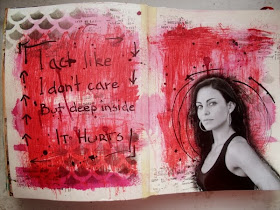 I act like
I don't care
But deep inside
IT HURTS!